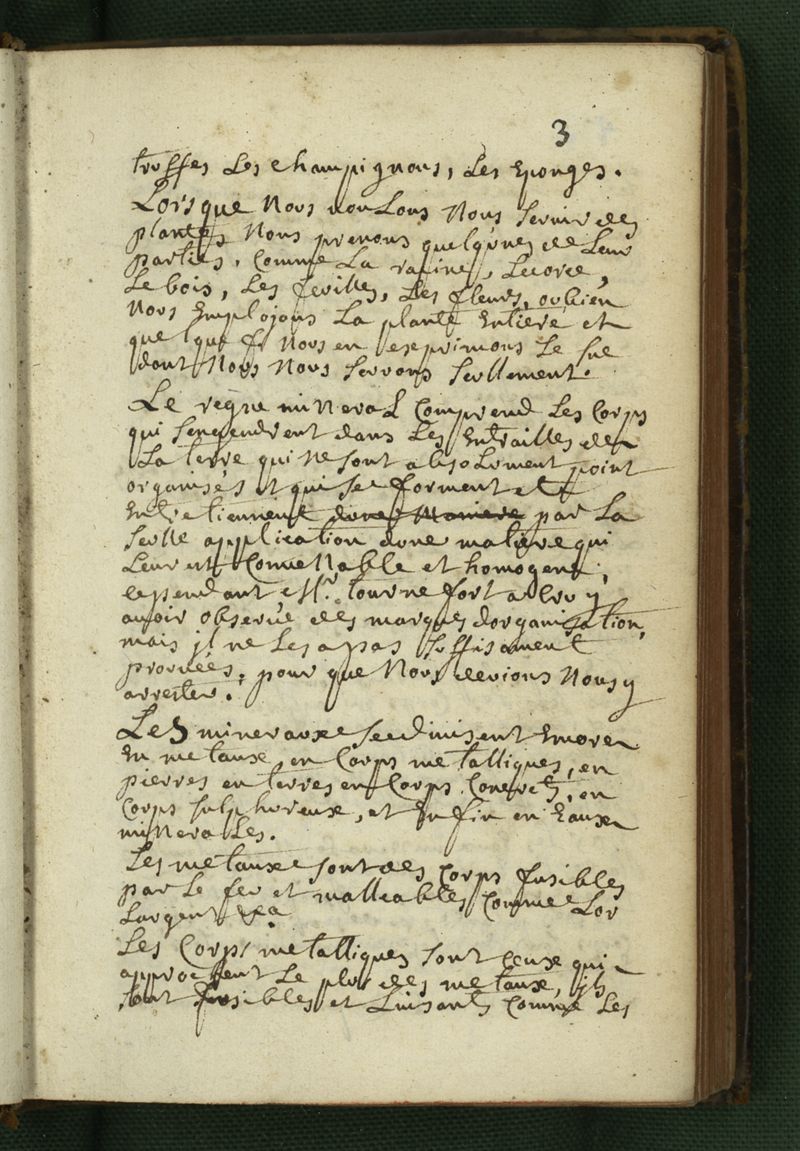 3
truffes Les champignons, Les Eponges.
Lorsque Nous voulons Nous Servir des
plantes Nous prenons quelqu'unes de Leurs
parties, Comme La racine, Lecorce,
Le bois, Les feuilles, Les fleurs, oubien
Nous Employons La plante Entiere et
quelque fs Nous en exprimons Le suc
dont Nous Nous servons seullement.
Le regne mineral Comprend Les Corps
qui sengendrent dans Les Entrailles de
La terre qui ne sont absolument point
organisés et qui se forment et
Entretiennent dune Maniere par La
seulle application dune matiere qui
Leur est Convenable et homogene,
cependant Mr. tournefort a cru y
avoir observé des marques dorganisation,
mais jl ne Les a pas suffisament
prouvées, pour que Nous devions Nous y
arrester.
Les mineraux se divisent Encore
En metaux, en Corps metalliques, en
pierres en terres en Corps Concrets, en
Corps sulphureux, et En fin en Eaux
minerales.
Les metaux sont des Corps fusibles
par Le feu et malleables Comme Lor
Largent &ca
Les Corps metalliques sont Ceux qui
approchent Le plus des metaux, jls
sont fusibles et Luisants Comme Les